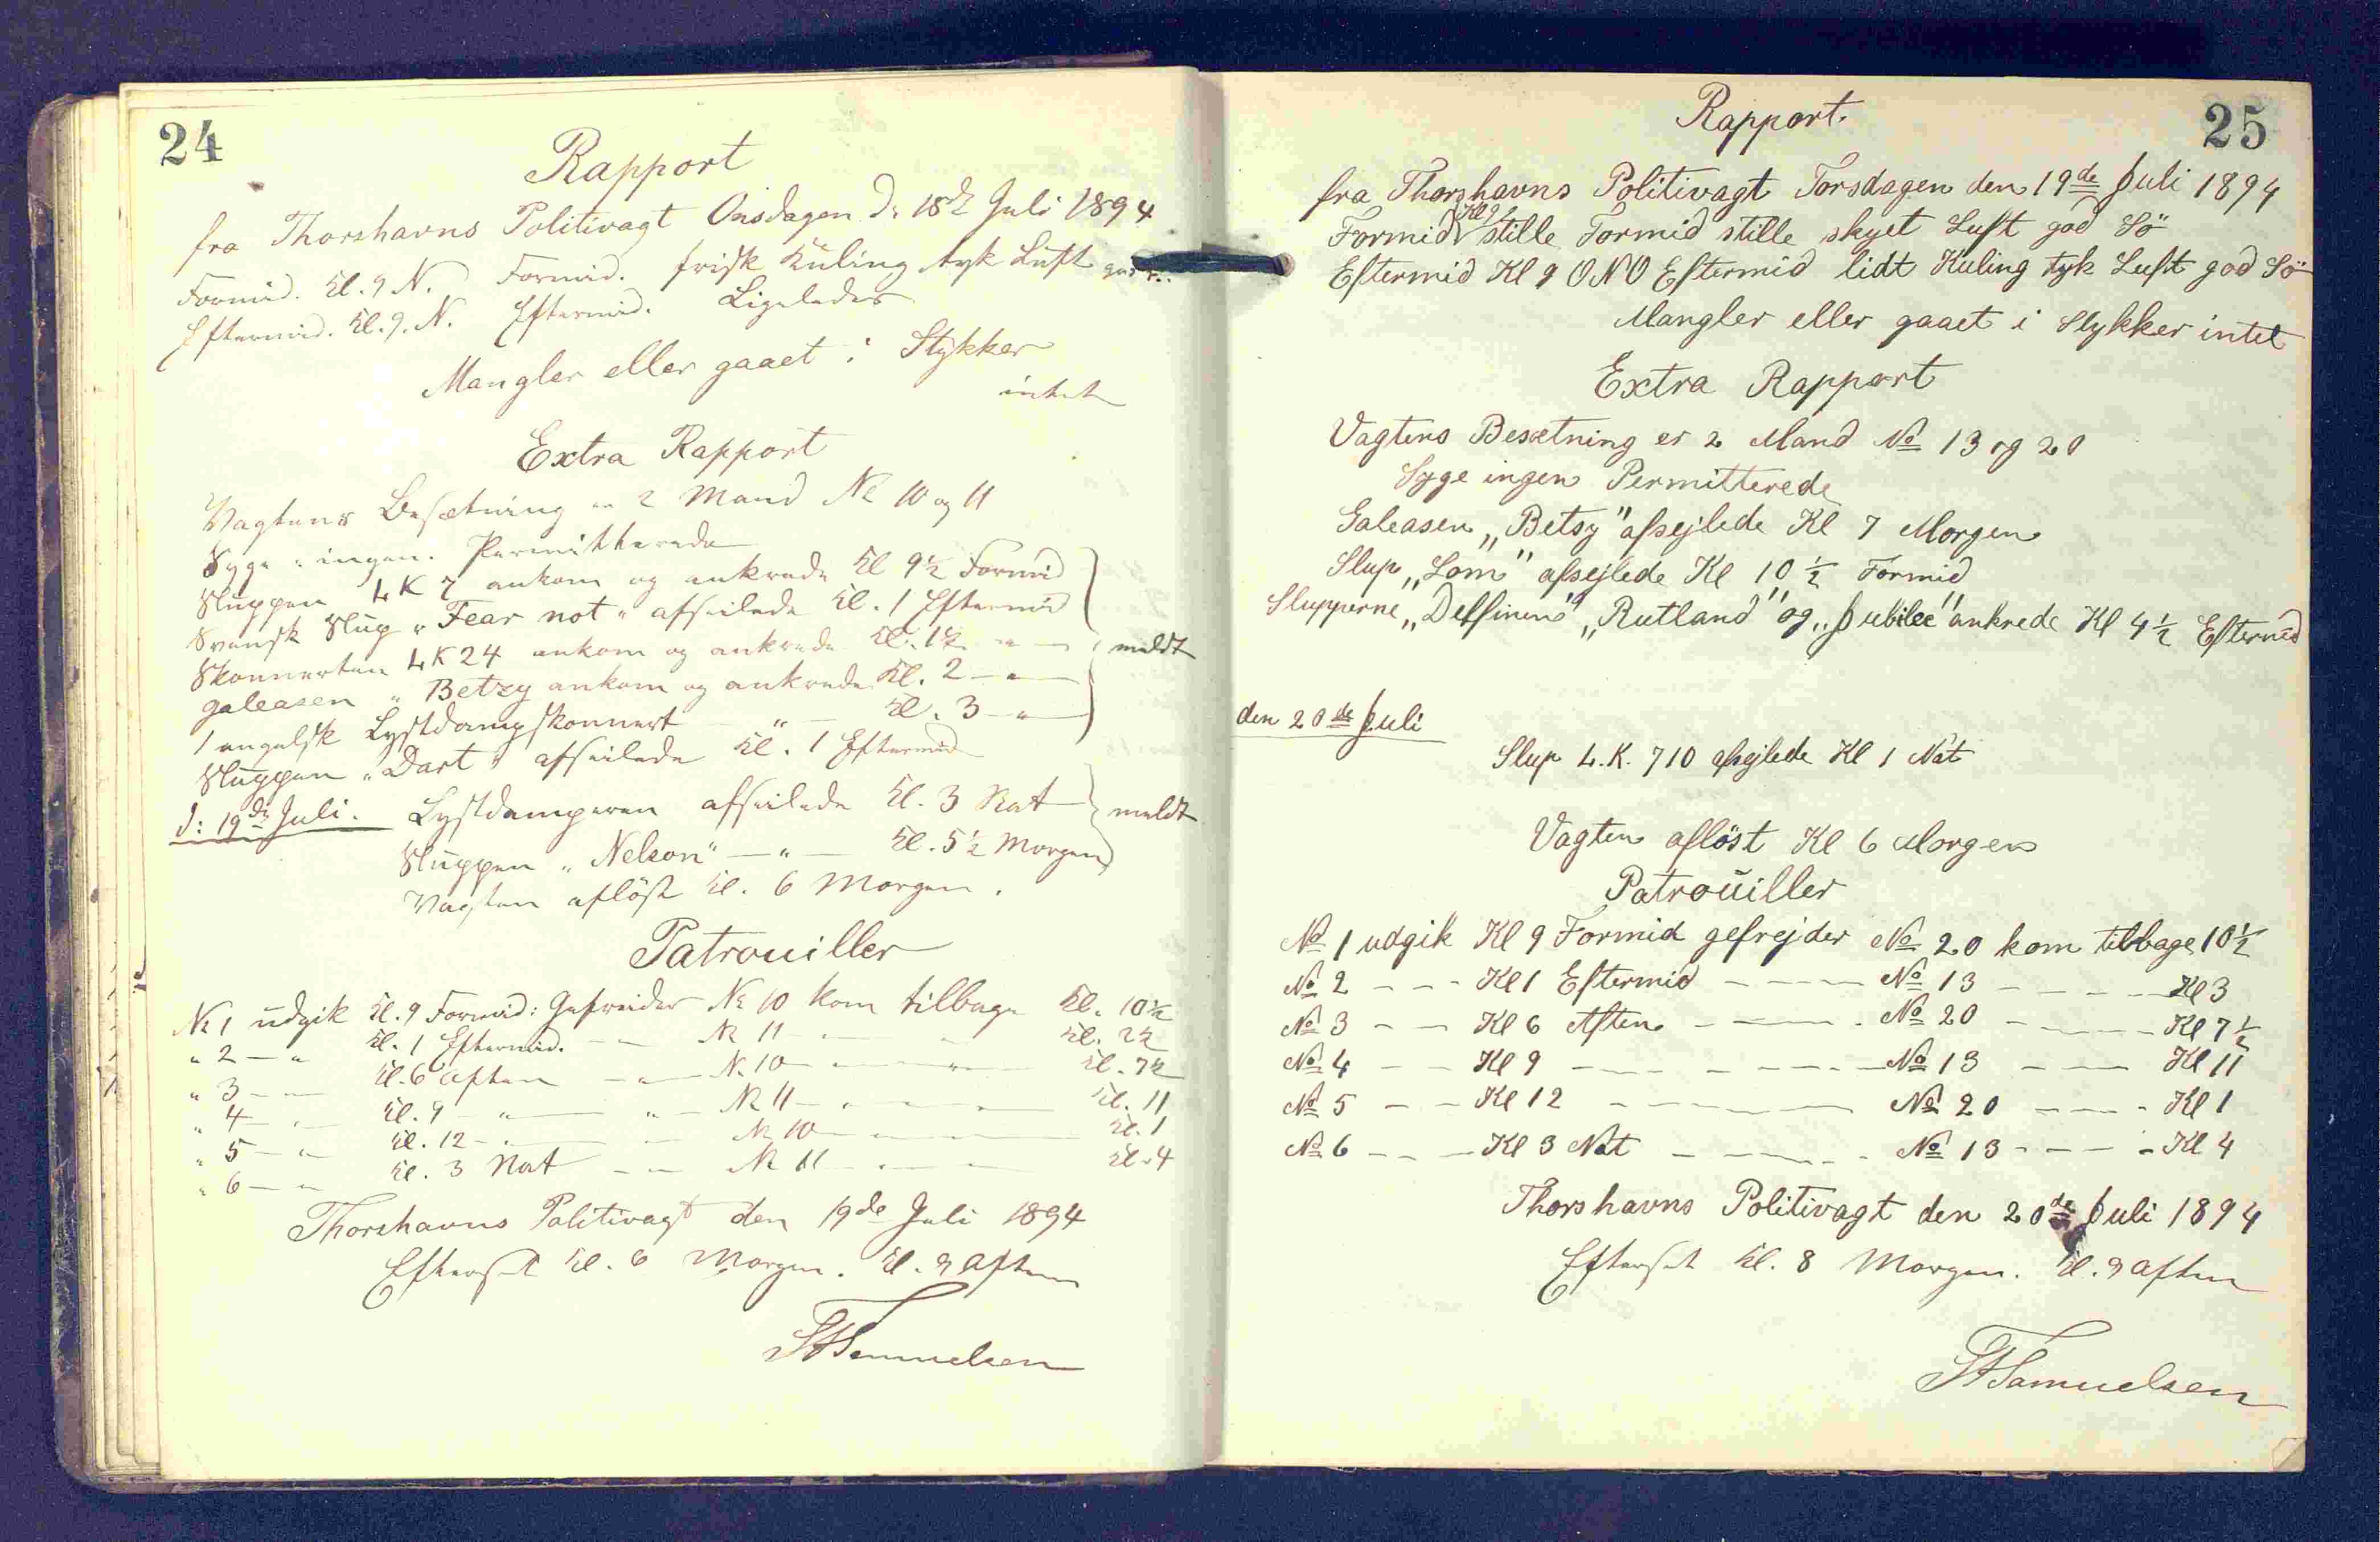 24
Rapport
fra Thorshavns Politivagt Onsdagen d: 18de Juli 1894
Formid. Kl. 9 N. Formid. frisk Kuling tyk Luft
Eftermid. Kl. 9. N. Eftermid. Ligeledes
Mangler eller gaaet i Stykker
intet
Extra Rapport
Vagtens Besætning er 2 Mand No 10 og 11
Syge : ingen. Permitterede
Sluppen LK 7 ankom og ankrede Kl 9½ Formid
Svensk Slup „Fear not" afseilede Kl. 1 Eftermid
Skonnerten LK 24 ankom og ankrede Kl. 1½ — " — meldt
galeasen „Betzy ankom og ankrede Kl. 2 — " —
1 engelsk Lystdampskonnert — " — Kl. 3 — " —
Sluppen „Dart" afseilede Kl. 1 Eftermid
d: 19de Juli. Lystdamperen afseilede Kl. 3 Nat meldt
Sluppen „Nelson" — " — Kl. 5½ Morgen
Vagten aflöst Kl. 6 Morgen.
Patrouiller
No 1 udgik Kl. 9 Formid: Gefreider No 10 kom tilbage Kl. 10½
" 2 — " Kl. 1 Eftermid. — — No 11 — " Kl. 2½
" 3 — — Kl. 6 Aften — " — No 10 — " — Kl. 7½
" 4 — Kl. 9 — " — " — No 11 — " — Kl. 11
" 5 — " Kl. 12 — " — — No 10 — — Kl. 1
" 6 — — Kl. 3 Nat — — No 11 — — Kl. 4
Thorshavns Politivagt den 19de Juli 1894
Efterset Kl. 6 Morgen. Kl. 9 Aften
Samuelsen
25
Rapport.
fra Thorshavns Politivagt Torsdagen den 19de Juli 1894
Formid Kl 9 stille Formid stille skyet Luft god Sö
Eftermid Kl 9 ONO Eftermid lidt Kuling tyk Luft god Sö
Mangler eller gaaet i Stykker intet
Extra Rapport
Vagtens Besætning er 2 Mand No 13 og 20
Syge ingen Permitterede
Galeasen „Betsy" afsejlede Kl 7 Morgen
Slup „Lom" afsejlede Kl 10 ½ Formid
Slupperne „Delfinen" „Rutland" og „Jubilee" ankrede Kl 4½ Eftermid
den 20de Juli
Slup L.K. 710 afsejlede Kl 1 Nat
Vagten aflöst Kl 6 Morgen
Patrouiller
No 1 udgik Kl 9 Formid gefrejder No 20 kom tilbage 10½
No 2 - - - Kl 1 Eftermid - - - - No 13 - - - - Kl 3
No 3 - - Kl 6 Aften - - - No 20 - - - - Kl 7½
No 4 - - Kl 9 - - - - - No 13 - - - Kl 11
No 5 - - Kl 12 - - - - No 20 - - - Kl 1
No 6 - - - Kl 3 Nat - - - - No 13 - - - - Kl 4
Thorshavns Politivagt den 20de Juli 1894
Efterset Kl. 8 Morgen. Kl. 9 Aften
Samuelsen